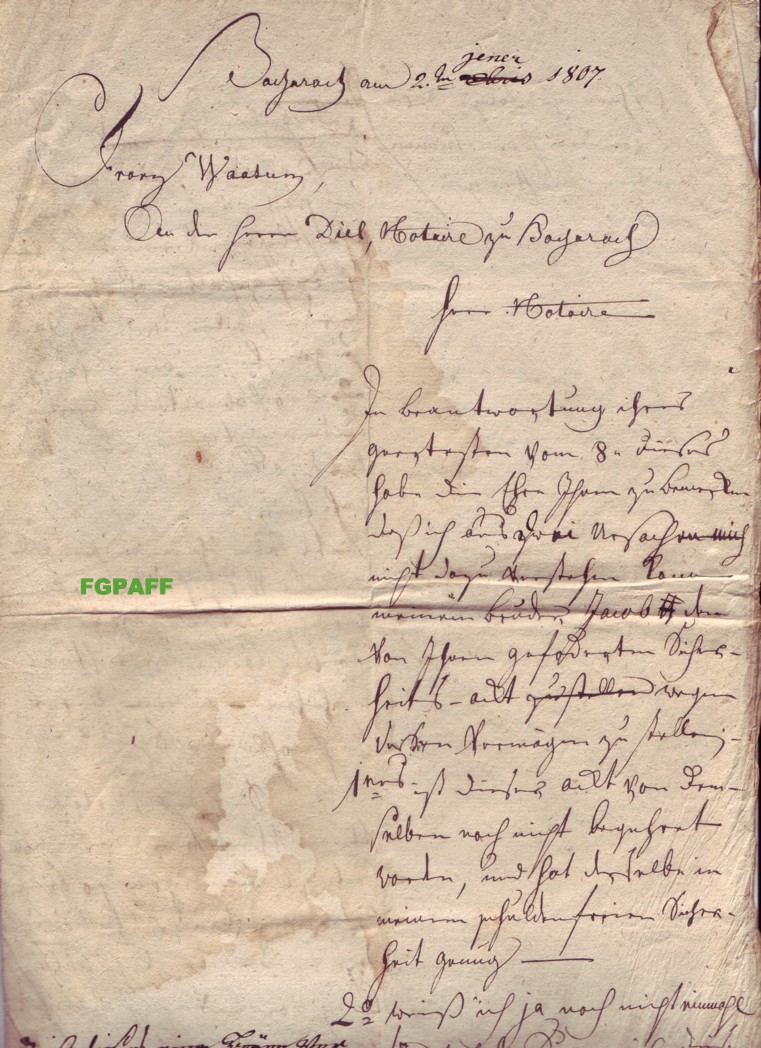 Bacharach am 2.tn jener 1807.
Franz Waasum,
An den Herrn Diel, Notaire zu Bacharach
Herr Notaire
In beantwortung ihres
geehrtesten vom 8n dieses
habe die Ehre Ihnen zu bemerken
daß ich aus zwei Ursachen mich
nicht dazu verstehen kann
meinem bruder Jacob den
von Ihnen geforderten Sicher-
heits-ackt zustellen wegen
dessen Vermögen zu stellen,
1tens ist dieses ackt von dem-
selben noch nicht begehret
worden, und hat derselbe in
meinem schuldenfreien Sicher-
heit genug
2o weiß ich ja noch nicht einmahl
FGPAFF